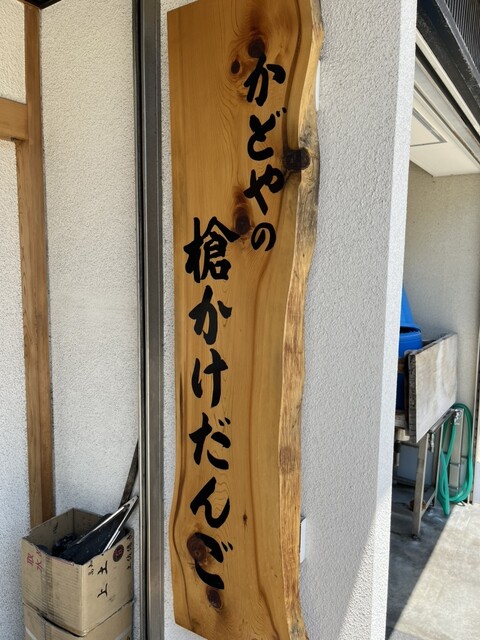 かどやの
槍かけだんご
上土